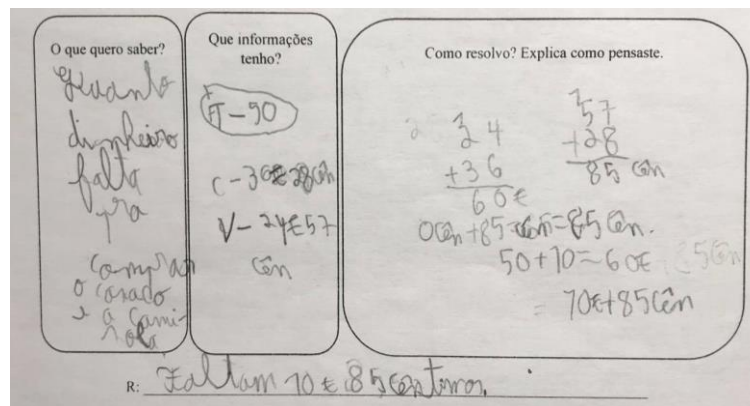 O que quero saber?
Quanto
dinheiro
falta
pra
comprar
o casaco
e a cami-
sola
Que informações
tenho?
T-90
C-36€28cên
V-24€57
cên
Como resolvo? Explica como pensaste.
24
+36
60€
57
+28
85 cên
0cên+85cên=85cên.
50+10=60€
=70€+85cên
R: Faltam 10€ 85 centimos.